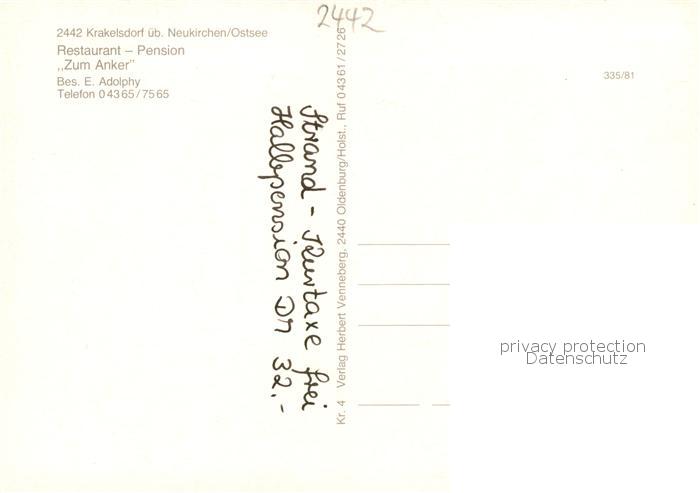 2442
2442 Krakelsdorf üb. Neukirchen/Ostsee
Restaurant – Pension
,,Zum Anker"
Bes. E. Adolphy
Telefon 0 43 65 / 75 65
335/81
Strand - Kurtaxe frei
Halbpension DM 32.-
Kr. 4 Verlag Herbert Venneberg, 2440 Oldenburg/Holst., Ruf 0 43 61 / 27 26
privacy protection
Datenschutz